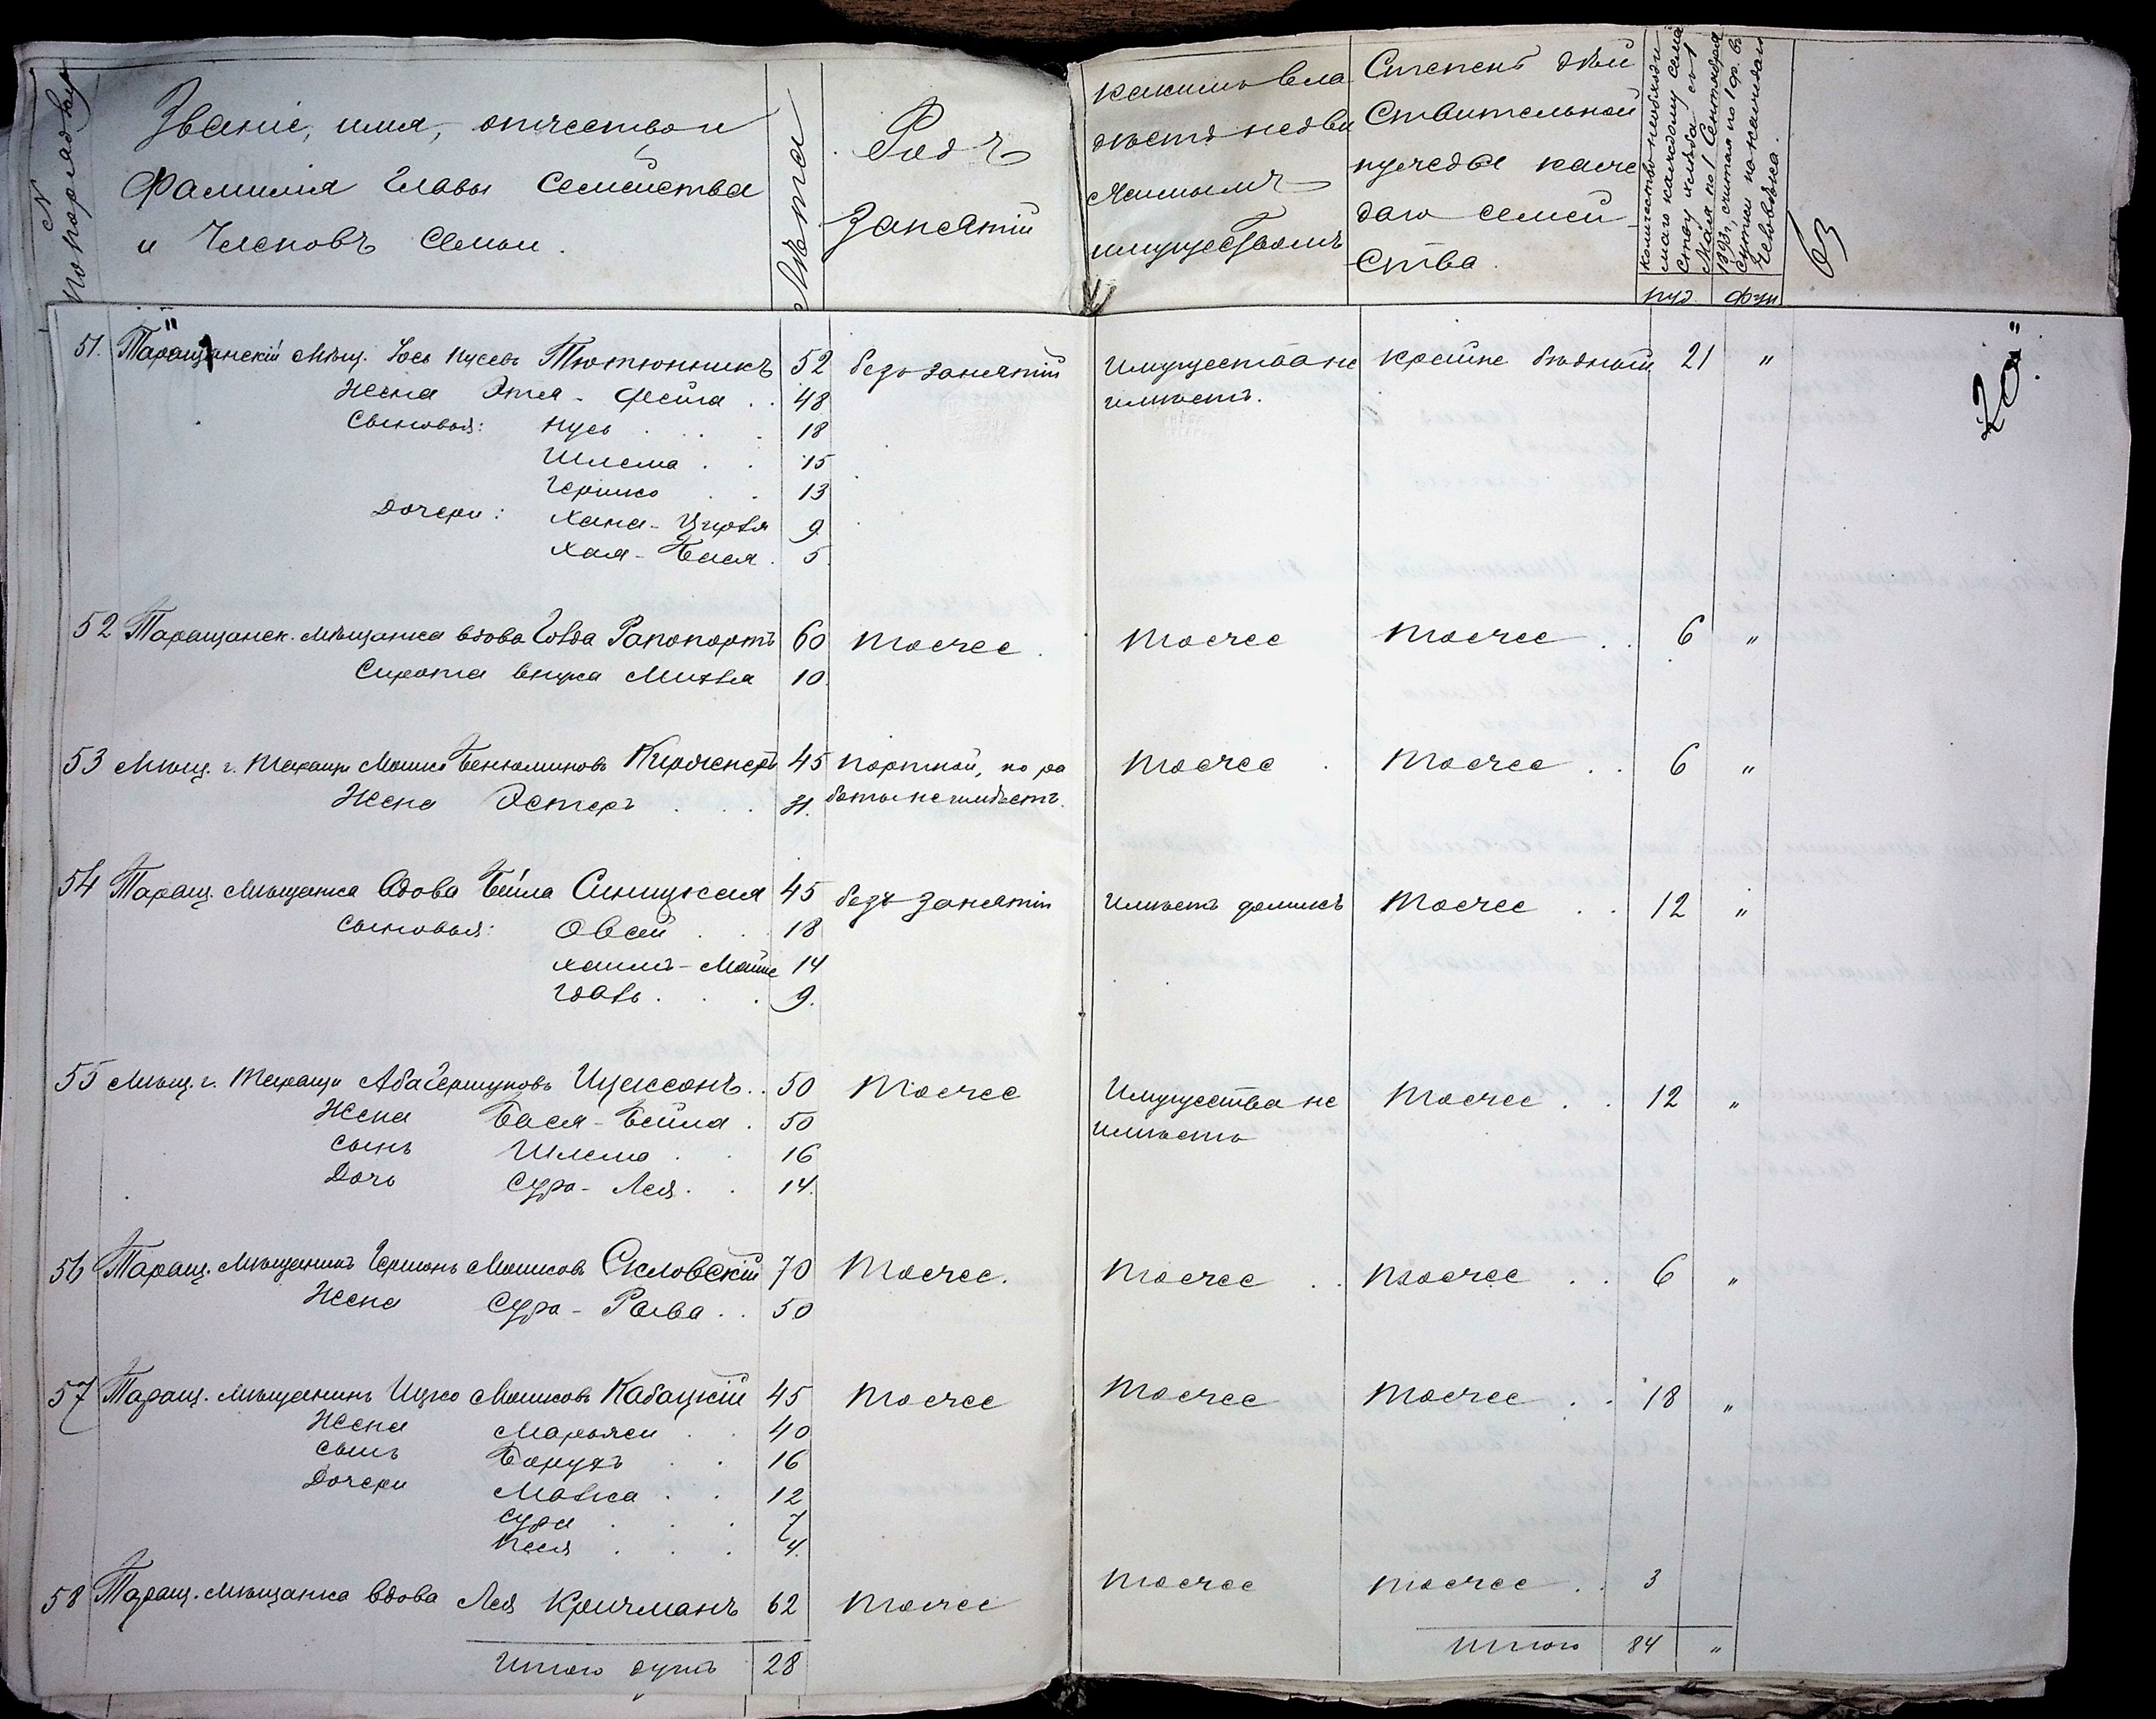 № по порядку
Званіе, имя, отчество и
Фамилія Главы Семейства
и Членовъ Семьи.
Лѣта
Родъ
Занятій
Какимъ вла
дѣетъ недви
жимымъ
имуществомъ
Степень дѣй
ствительной
нужды каж
даго семей
ства.
Количество необходи
маго каждому семе
ству хлѣба съ 1
Мая по 1 Сентября
1893 г., считая по 1 ф. въ
сутки на каждаго
человѣка.
пуд. фун
63
20.
51. Таращанскій мѣщ. Іось Нусевъ Тютюнникъ 52 безъ занятій Имущества не крайне бѣдный 21 "
Жена Этля - Фейга . . 48 имѣетъ.
Сыновья: Нусь . . . 18
Шлема . . 15
Гершко . . 13
Дочери: Хана - Цирля 9
Хая - Бася . 5
52 Таращанск. мѣщанка вдова Голда Рапопортъ 60 тоже . тоже тоже . . 6 "
Сирота внука Михля 10
53 Мѣщ. г. Таращи Мошко Беньяминовъ 45 портной, но ра тоже . тоже . . 6 "
Жена Эстеръ . . . боты не имѣетъ.
54 Таращ. мѣщанка вдова Бейла Синицкая 45 безъ занятій Имѣетъ домикъ тоже . . 12 "
Сыновья: Овсей . . 18
Хаимъ - Мойше 14
9.
55 Мѣщ. г. Таращи Аба Гершуновъ Ицексонъ . . 50 тоже Имущества не тоже . . 12 "
Жена Бася - Бейла . 50 имѣетъ
Сынъ Шлема . . 16
Дочь Сура - Лея . . 14.
56 Таращ. мѣщанинъ Гершонъ Мошковъ Скловскій 70 тоже. тоже . . тоже . . 6 "
Жена Сура - Рыва . . 50
57 Таращ. мѣщанинъ Ицко Мошковъ Кабацкій 45 тоже тоже тоже . . 18 "
Жена Марьяси . . 40
Сынъ Борухъ . . 16
Дочери Малка . . 12
Сура . . . 7
Песя . . . 4.
58 Таращ. мѣщанка вдова Лея Кричманъ 62 тоже тоже тоже . . 3
Итого душъ 28 Итого 84 "